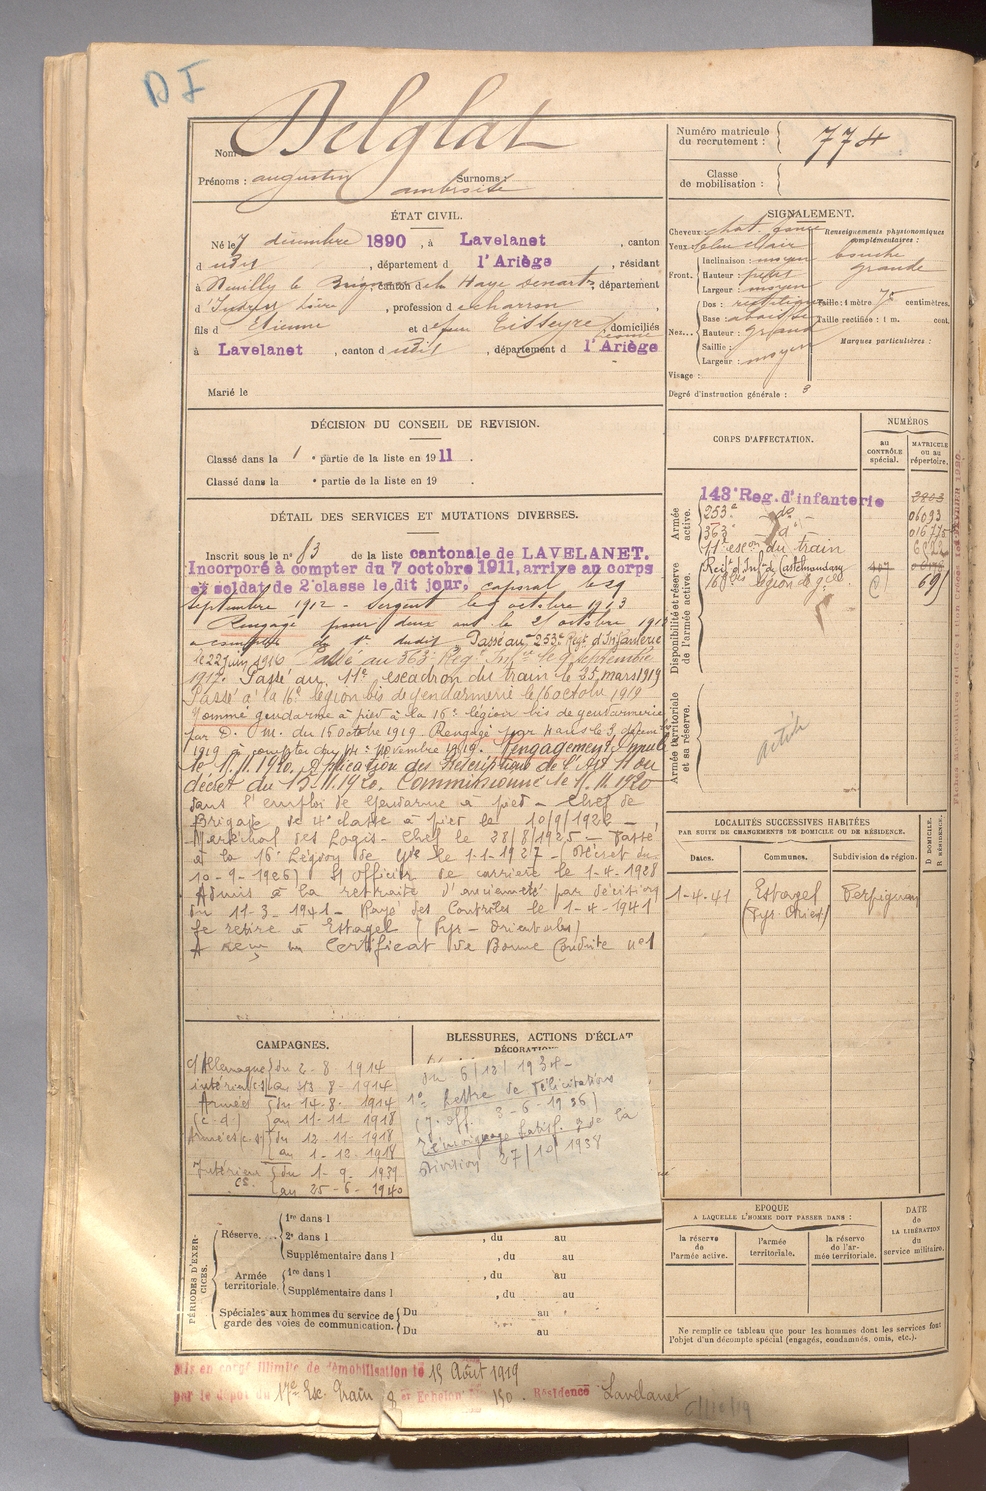 D I
Nom Delglat
Prénoms : augustin Surnoms :
ambroise
ÉTAT CIVIL.
Né le 7 décembre 1890, à Lavelanet, canton
d udit, département d l'Ariège, résidant
à Neuilly le canton de la Haye département
d' Indre Loire, profession de charron
fils d Etienne et de Eisseyre domiciliés
à Lavelanet, canton d udit, département d l'Ariège
Marié le
DÉCISION DU CONSEIL DE REVISION.
Classé dans la 1e partie de la liste en 1911.
Classé dans la e partie de la liste en 19 .
DÉTAIL DES SERVICES ET MUTATIONS DIVERSES.
Inscrit sous le n° 83 de la liste cantonale de LAVELANET.
Incorporé à compter du 7 octobre 1911, arrive au corps
et soldat de 2e classe le dit jour. caporal le
septembre 1912 - Sergent le octobre 1913
Rengagé pour deux ans le 21 octobre 1913
a compter du dudit Passé au 253e Regt d'Infanterie
le 22 juin 1916 Passé au 363e Reg Inf le 9 septembre
1917. Passé au 11e escadron du train le 25 mars 1919
Passé à la 16e légion bis de gendarmerie le 16 octobre 1919
Nommé gendarme à pied à la 16e légion bis de gendarmerie
par D. M. du 16 octobre 1919. Rengagé pour 4 ans le 3 décemb
1919 à compter du 14 novembre 1919. Rengagement annulé
le 11.11.1920. Application des prescriptions de l'Art 11 du
décret du 13.11.1920. Commissionné le 11.11.1920
dans l'emploi de Gendarme à pied - Chef de
Brigade de 4e classe à pied le 10/9/1922 -
Maréchal des Logis-Chef le 28/8/1925 - Passé
à la 16e Légion de Gie le 1-1-1927 - (Décret du
10-9-1926) St Officier de carrière le 1-4-1928
Admis à la retraite d'ancienneté par décision
du 11-3-1941 - Rayé des Contrôles le 1-4-1941
se retire à Estagel (Pyr-Orientales)
A reçu un Certificat de Bonne Conduite n°1
CAMPAGNES.
c/ Allemagne du 2-8-1914
intérieur (c.s) au 13-8-1914
Armées du 14-8-1914
(c.d.) au 11-11-1918
Armées (c.s) du 12-11-1918
au 1-12-1918
Intérieur du 1-9-1939
CS. au 25-6-1940
BLESSURES, ACTIONS D'ÉCLAT
DÉCORATION
du 6/12/1934 -
1° Lettre de Félicitations
(J. off. 3-6-1936)
Témoignage Satisf. de la
Division 27/10/1938
PÉRIODES D'EXERCICES.
Réserve....
1re dans l
2e dans l , du au
Supplémentaire dans l , du au
Armée territoriale.
1re dans l , du au
Supplémentaire dans l , du au
Spéciales aux hommes du service de
garde des voies de communication.
Du au
Du au
Mis en congé illimité de démobilisation le 15 Août 1919
par le dépôt du 17e Esc. Train 8e Echelon n° 150. Résidence Lavelanet
Numéro matricule
du recrutement : 774
Classe
de mobilisation :
SIGNALEMENT.
Cheveux chat. foncé
Yeux bleu clair
Front. Inclinaison : moyen
Hauteur : petit
Largeur : moyen
Nez... Dos : rectiligne
Base : abaissée
Hauteur : grand
Saillie :
Largeur : moyen
Visage :
Renseignements physionomiques
complémentaires :
bouche
grande
Taille : 1 mètre 75 centimètres.
Taille rectifiée : 1 m. cent.
Marques particulières :
Degré d'instruction générale : 3
CORPS D'AFFECTATION.
NUMÉROS
AU CONTRÔLE spécial.
MATRICULE ou au répertoire.
Armée active.
143e Reg. d'infanterie 2803
253e do 06093
363e do 016775
11e escon du train
Regt d'Inf. de Castelnaudary
16e bis légion de gie 691
Disponibilité et réserve de l'armée active.
Armée territoriale et sa réserve.
activité
LOCALITÉS SUCCESSIVES HABITÉES
PAR SUITE DE CHANGEMENTS DE DOMICILE OU DE RÉSIDENCE.
Dates. Communes. Subdivision de région. D DOMICILE. R RÉSIDENCE.
1-4-41 Estagel Perpignan
(Pyr. Orient.)
EPOQUE
A LAQUELLE L'HOMME DOIT PASSER DANS :
la réserve de l'armée active.
l'armée territoriale.
la réserve de l'armée territoriale.
DATE de LA LIBÉRATION du service militaire.
Ne remplir ce tableau que pour les hommes dont les services font
l'objet d'un décompte spécial (engagés, condamnés, omis, etc.).